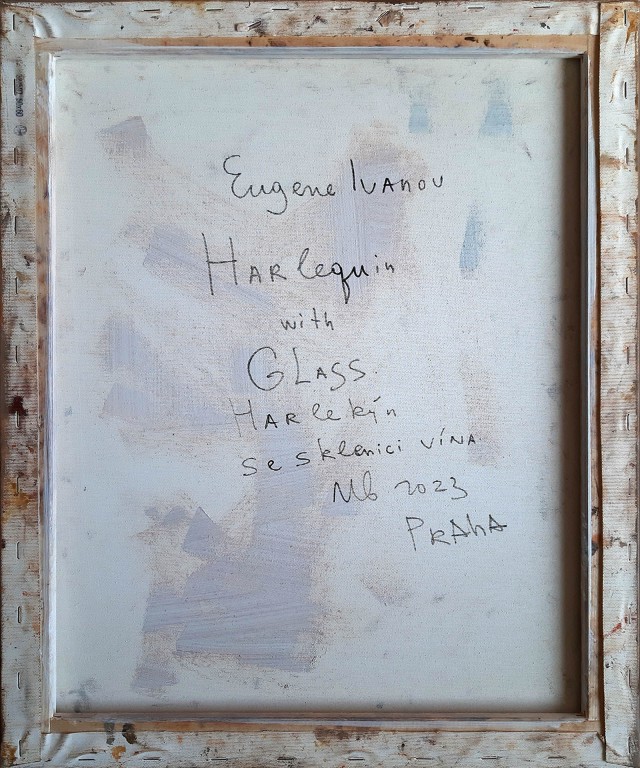 Eugene Ivanov
Harlequin
with
Glass.
Harlekýn
se sklenici vína.
Nb 2023
Praha